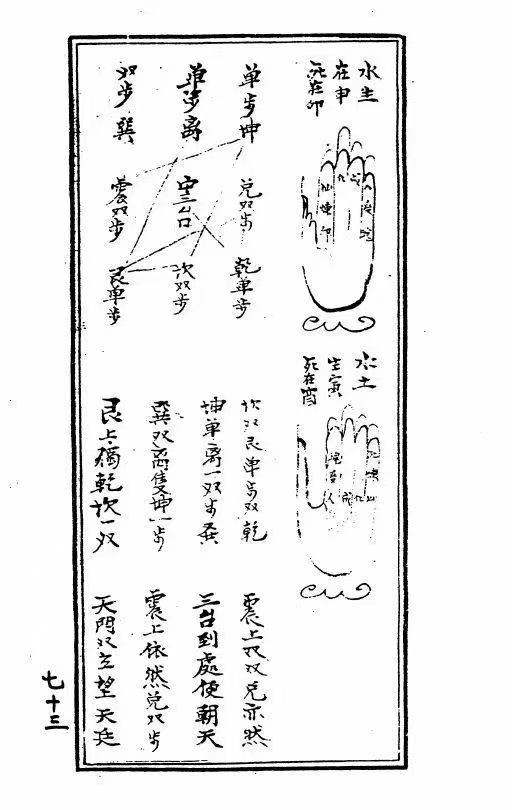 水生
在申
死在卯
水土
生寅
死在酉
单步坤
兑双步
乾单步
单步离
中三台
坎双步
双步巽
震双步
艮单步
坎双艮单步双乾
震上双双兑亦然
坤单离一双步
三台到處使朝天
巽双离隻坤一步
震上依然兑双步
艮上獨乾坎一双
天門双立望天廷
七十三